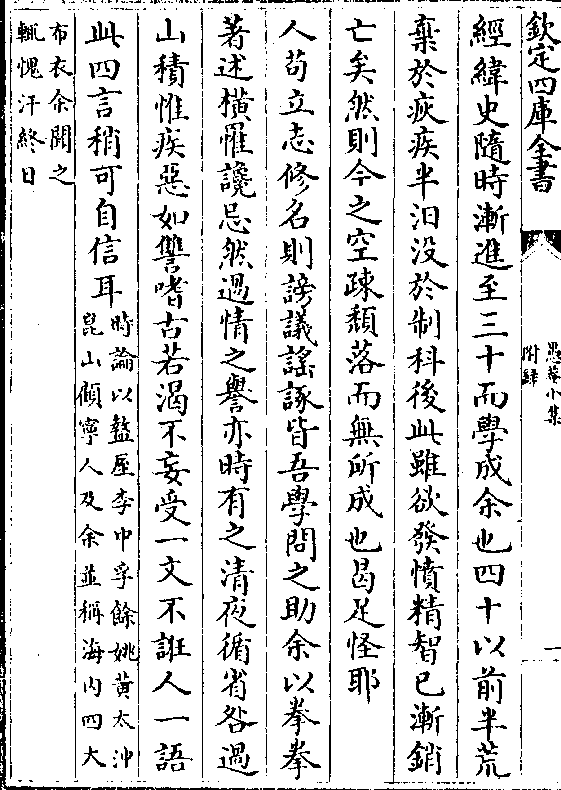 欽定四庫全書
愚菴小集
附録
一
經緯史隨時漸進至三十而學成余也四十以前半荒
棄於疢疾半汩没於制科後此雖欲發憤精智已漸銷
亡矣然則今之空疎頽落而無所成也曷足怪耶
人苟立志修名則謗議謡諑皆吾學問之助余以拳拳
著述橫罹讒忌然過情之譽亦時有之清夜循省咎過
山積惟疾惡如讐嗜古若渴不妄受一文不誑人一語
此四言稍可自信耳
時論以盩厔李中孚餘姚黄太沖
崑山顧寧人及余並稱海内四大
布衣余聞之
輒愧汗終日